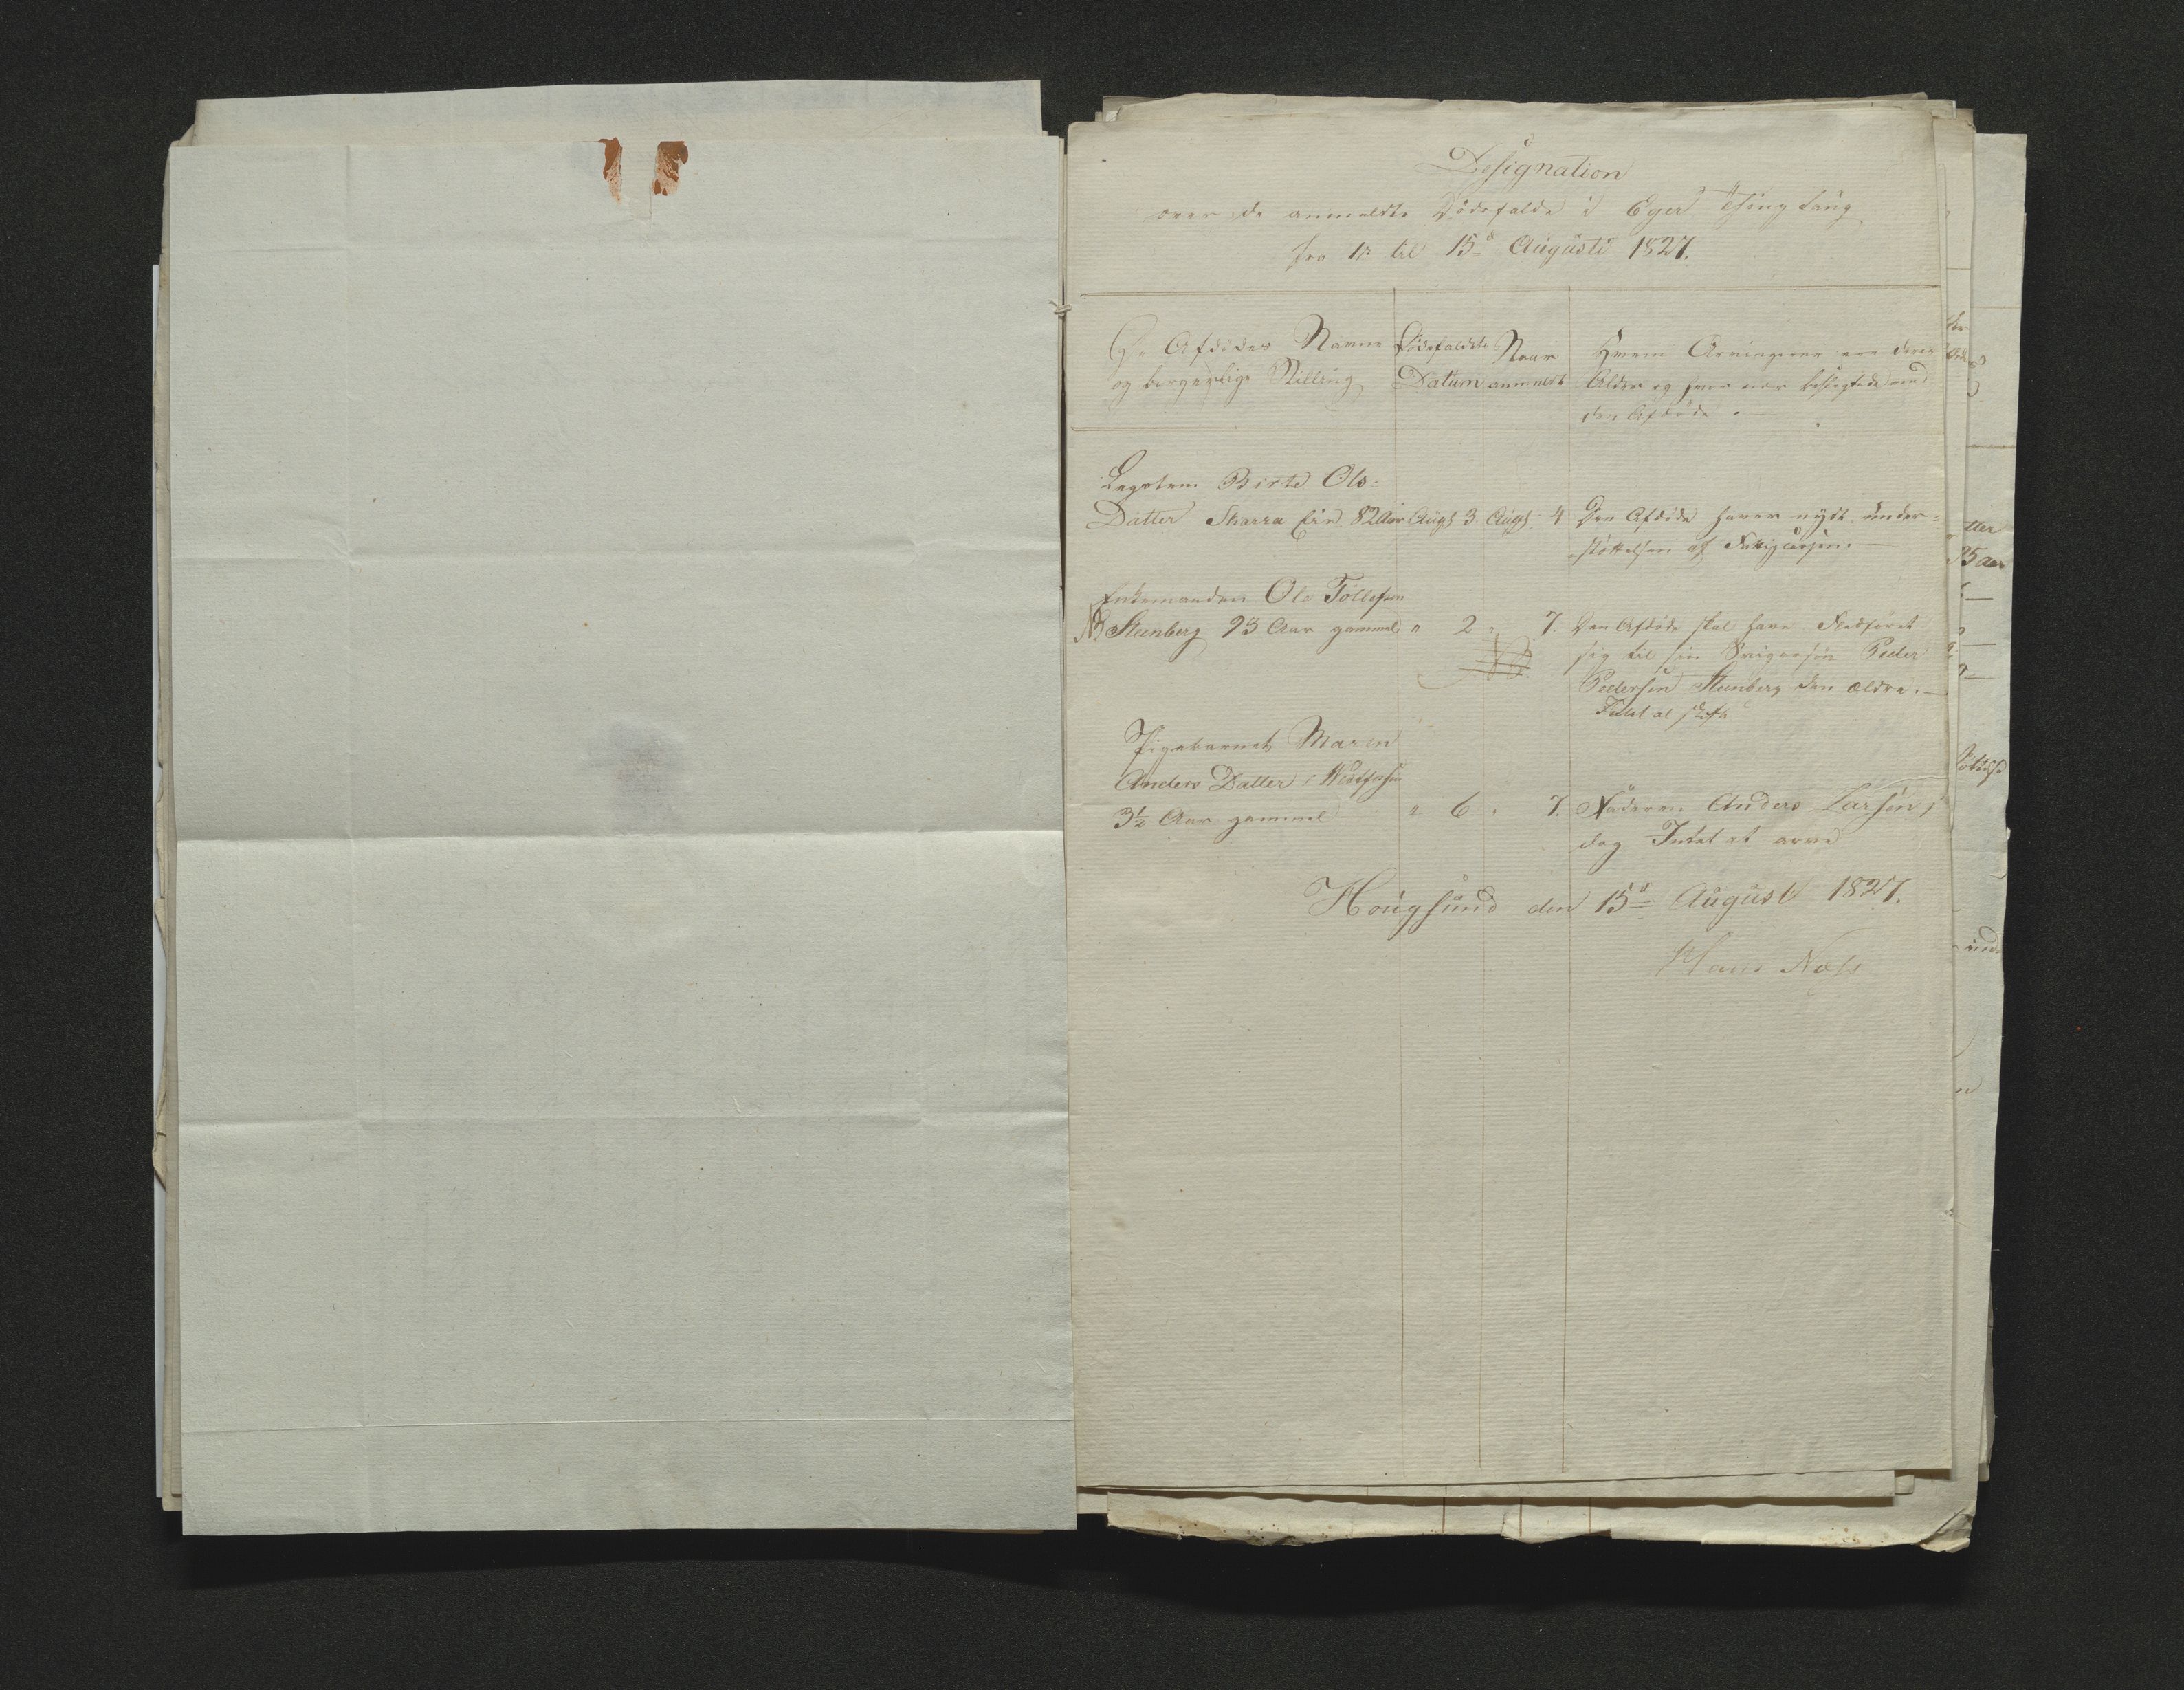 Designation
over de anmeldte Dødsfalde i Eger Thinglaug
fra 1te til 15de Augusti 1827.
De Afdødes Navne
og borgerlige Stilling
Dødsfaldets
Datum
Naar
anmeldt
Hvem Arvingerne ere deres
Alder og hvor nær beslegtede med
den Afdøde.
Legdlem Birte Ols-
Datter Skarra Eie 82 Aar Augst 3 Augst 4 Den Afdøde haver nydt under-
støttelsen af Fattigcassen.
Enkemanden Ole Tollefsen
NB Steenberg 93 Aar gammel " 2 " 7. Den Afdøde skal have Fledføret
sig til sin Svigersøn Peder
Pedersen Steenberg den ældre.
Intet at skifte
Pigebarnet Maren
Anders Datter i
3½ Aar gammel " 6 " 7. Faderen Anders Larsen,
dog Intet at arve
Hougsund den 15de August 1827.
Hans Næss
ller
95 aar